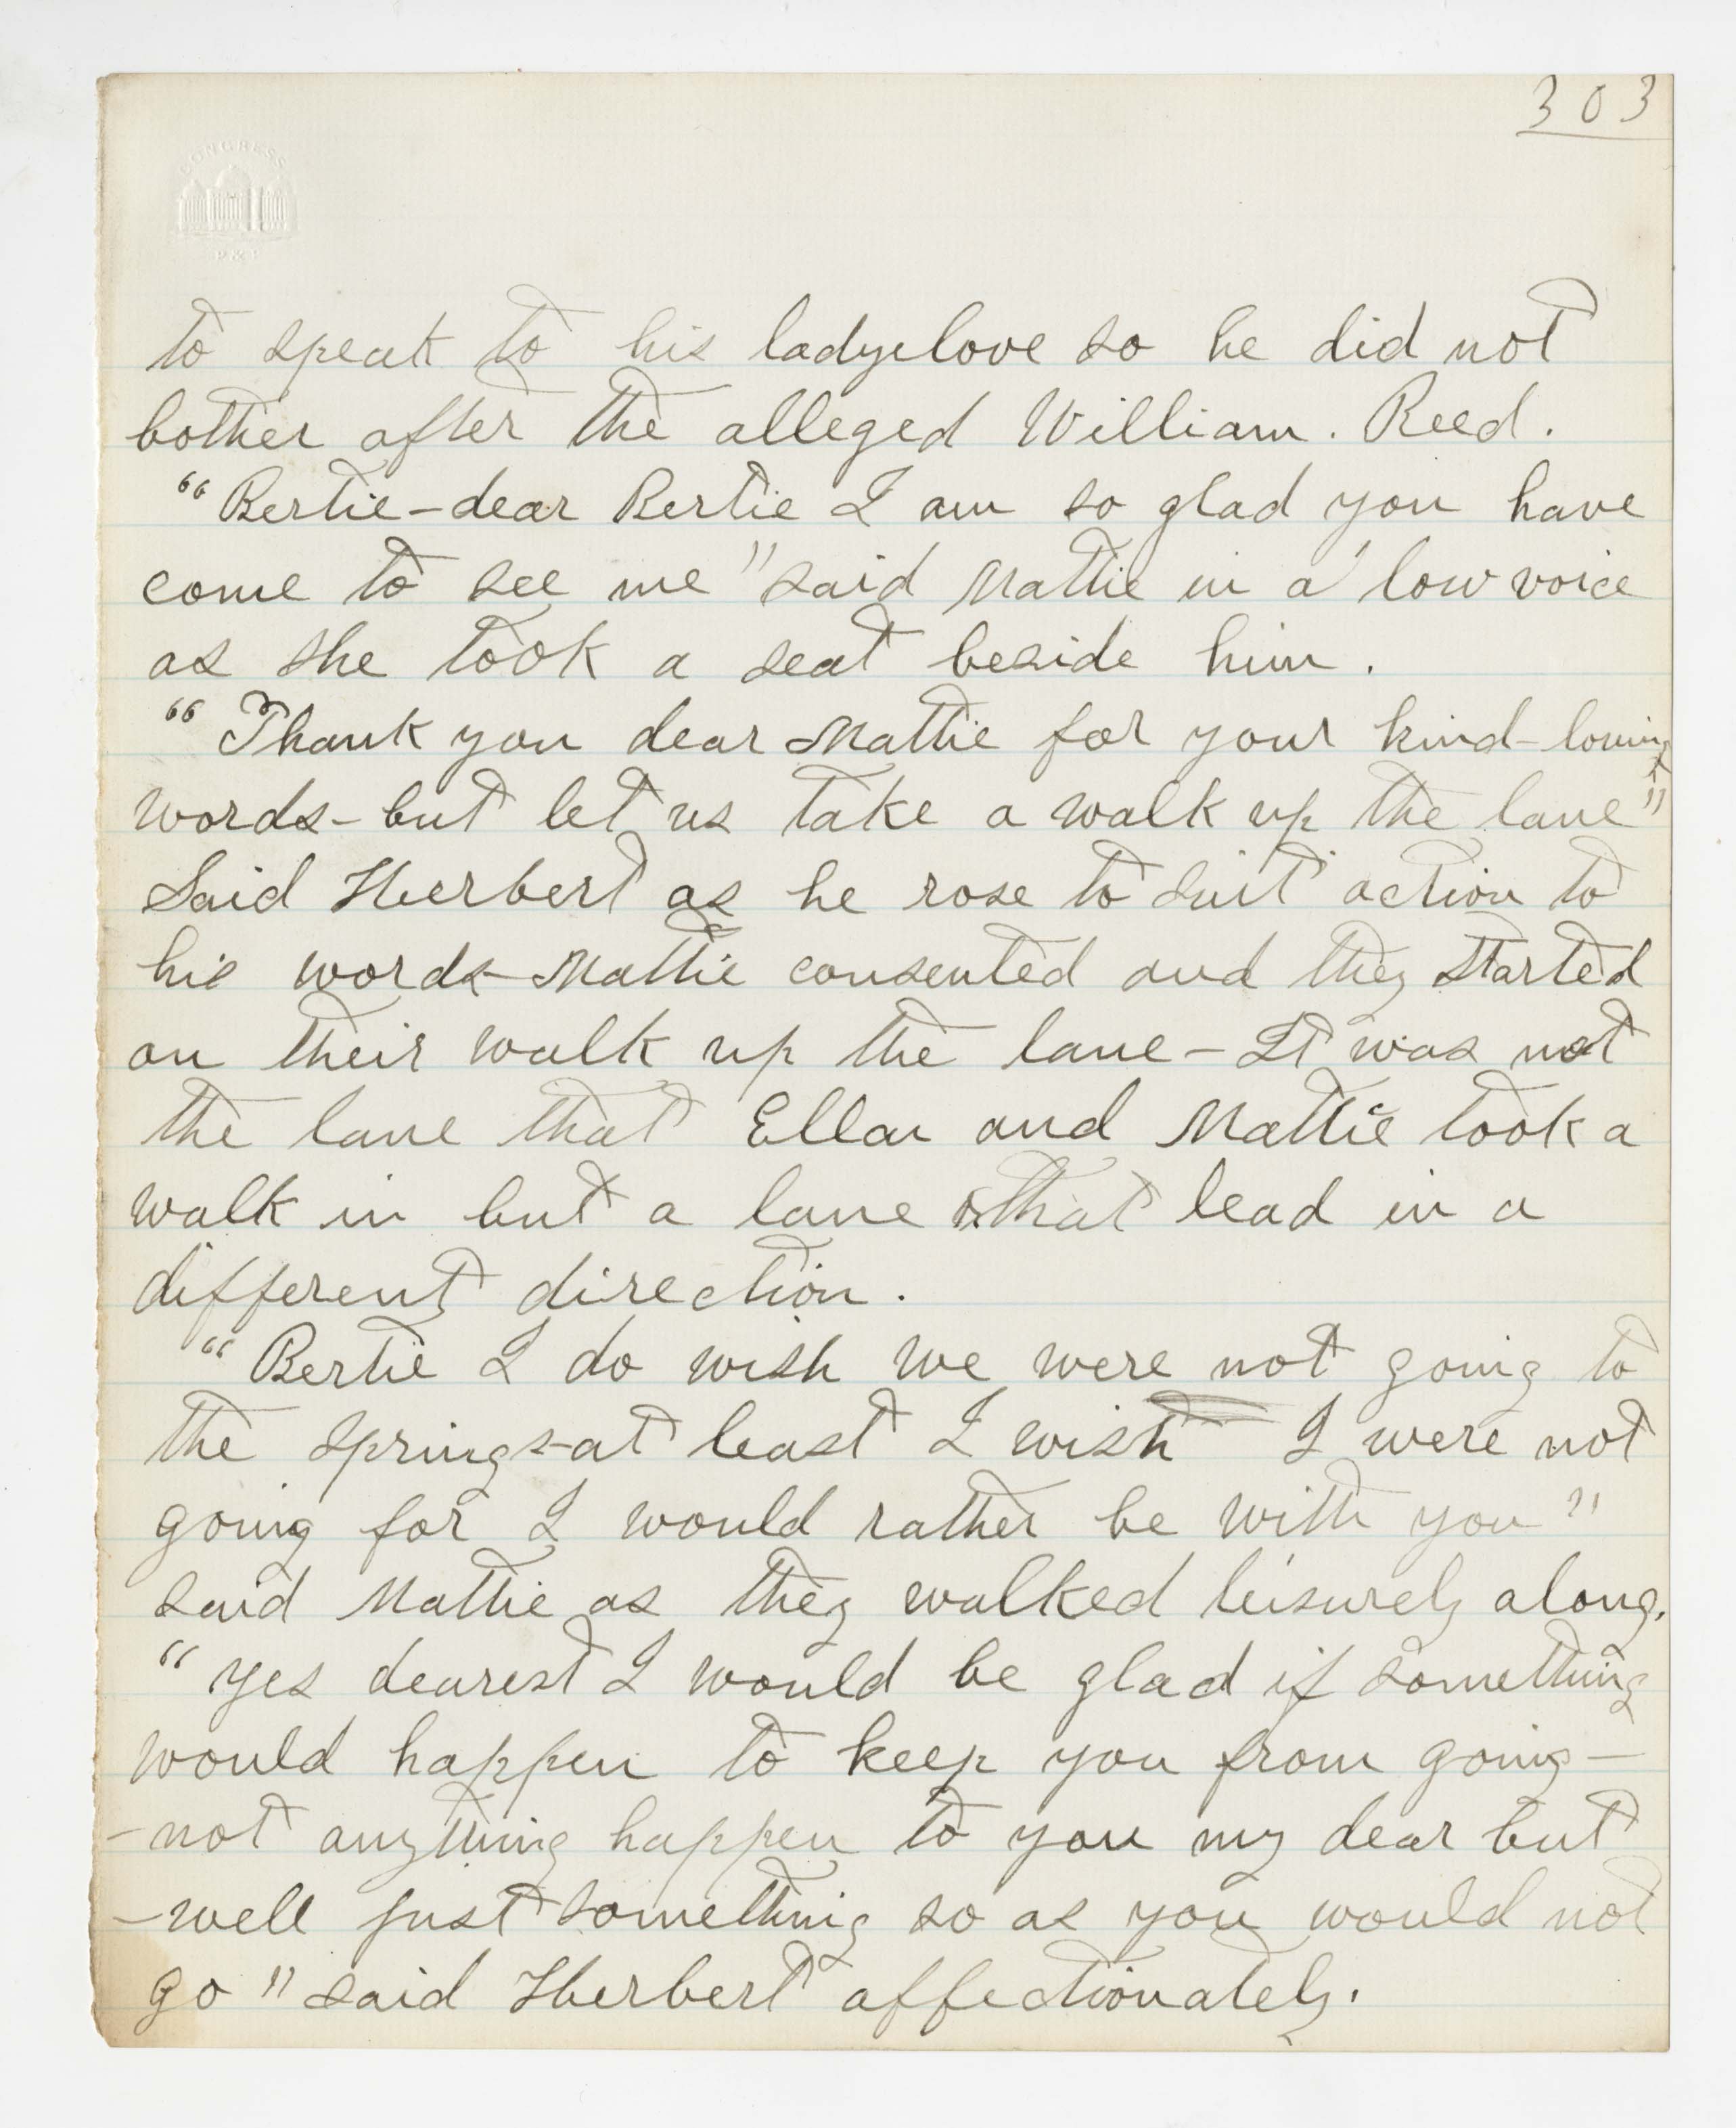 303
CONGRESS
P & P
to speak to his ladyelove so he did not
bother after the alleged William. Reed.
"Bertie-dear Bertie I am so glad you have
come to see me" said Mattie in a low voice
as she took a seat beside him.
"Thank you dear Mattie for your kind-loving
words-but let us take a walk up the lane"
Said Herbert as he rose to suit action to
his words-Mattie consented and they started
on their walk up the lane-It was not
the lane that Ellar and Mattie took a
walk in but a lane that lead in a
different direction.
"Bertie I do wish we were not going to
the springs-at least I wish I were not
going for I would rather be with you"
said Mattie as they walked leisurely along.
"Yes dearest I would be glad if something
would happen to keep you from going-
-not anything happen to you my dear but
-well just something so as you would not
go" said Herbert affectionately.